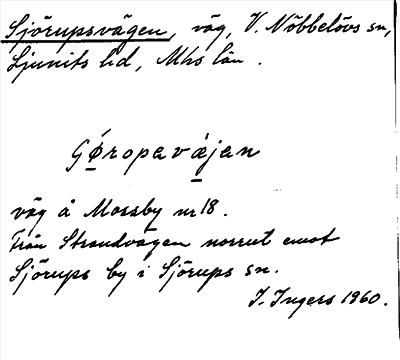 Sjörupsvägen, väg, V. Nöbbelövs sn,
Ljunits hd, Mhs län.
Gøropavæjan
väg å Mossby nr 18.
Från Strandvägen norrut emot
Sjörups by i Sjörups sn.
I. Ingers 1960.